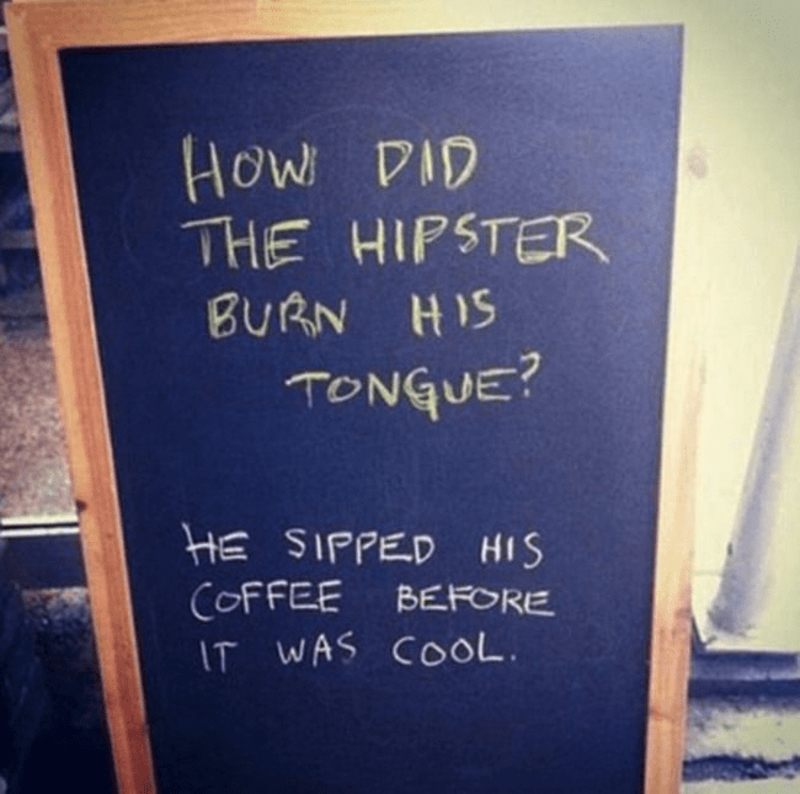 HOW DID
THE HIPSTER
BURN HIS
TONGUE?
HE SIPPED HIS
COFFEE BEFORE
IT WAS COOL.